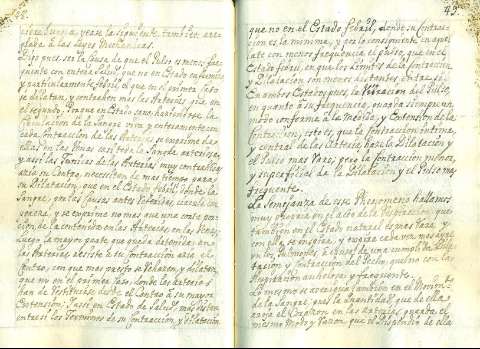 48.
otra fuerza, y es la siguiente tambien arre
glada à las leyes Mechanicas.
Digo pues ser la causa de que el Pulso es menos fre
quente con entera salud que no en Estado enfermizo
y particularmente febril, el que en el primer caso
se dilatan, y contrahen mas las Arterias, que en
el segundo. Porque en Estado sano, haciendose la
Circulacion de la Sangre viva y enteramente con
cada contraccion de las Arterias se exprime de
ellas en las Venas casi toda la Sangre
y assi las Tunicas de las Arterias muy contrahidas
azia su Centro, necesitan de mas tiempo para
su Dilatacion, que en el Estado febril donde la
Sangre, por las Causas antes referidas, circula con
y se exprime no mas que una corta por
cion de la contenida en las Arterias en las Venas;
luego la mayor parte que queda detenida en
las Arterias resiste a su contraccion azia el
Centro, con que mas presto se dilatan,
que no en el primer caso, donde las Arterias
han de desde el Centro à su mayor
Extension: Pues en Estado de Salud, mas distan
entre si los Terminos de su Contraccion, y Dilatación
49.
que no en el Estado febril, donde su contrac
cion es la minima, y por lo consiguiente en aquel
late con menos frequencia el pulso, que en el
Estado febril, en que los limites de la Contraccion
y Dilatacion son menos distantes entre si.
En ambos Estados pues, la Vibracion del Pulso
en quanto à su frequencia, guarda siempre un
modo conforme à la Medida, y Extension de la
Contraccion; esto es, que la contraccion intima,
y central de las Arterias haze la Dilatación y
el Pulso mas Raro; pero la contraccion menor,
y superficial la Dilatacion y el Pulso mas
frequente.
La semejanza de este Phenomeno hallamos
muy propria en el acto de la Respiracion, que
tambien en el Estado natural es mas Rara y
con ella se inspira, y expira cada vez mas ayre
en los Pulmones à causa de una cumplida Dila
tacion y contraccion del Pecho, que no con la
Respiracion anhelosa y frequente.
Lo mesmo se averigua tambien en el
de la Sangre, pues la Quantidad, que de ella
vacia el Corazon en las Arterias, guarda el
mismo Modo y Razon, que el Dispendio de ella